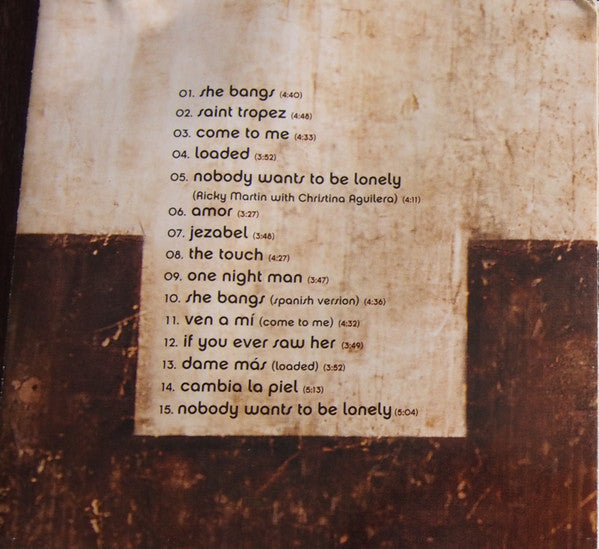 01. she bangs (4:40)
02. saint tropez (4:48)
03. come to me (4:33)
04. loaded (3:52)
05. nobody wants to be lonely
(Ricky Martin with Christina Aguilera) (4:11)
06. amor (3:27)
07. jezabel (3:48)
08. the touch (4:27)
09. one night man (3:47)
10. she bangs (spanish version) (4:36)
11. ven a mí (come to me) (4:32)
12. if you ever saw her (3:49)
13. dame más (loaded) (3:52)
14. cambia la piel (5:13)
15. nobody wants to be lonely (5:04)